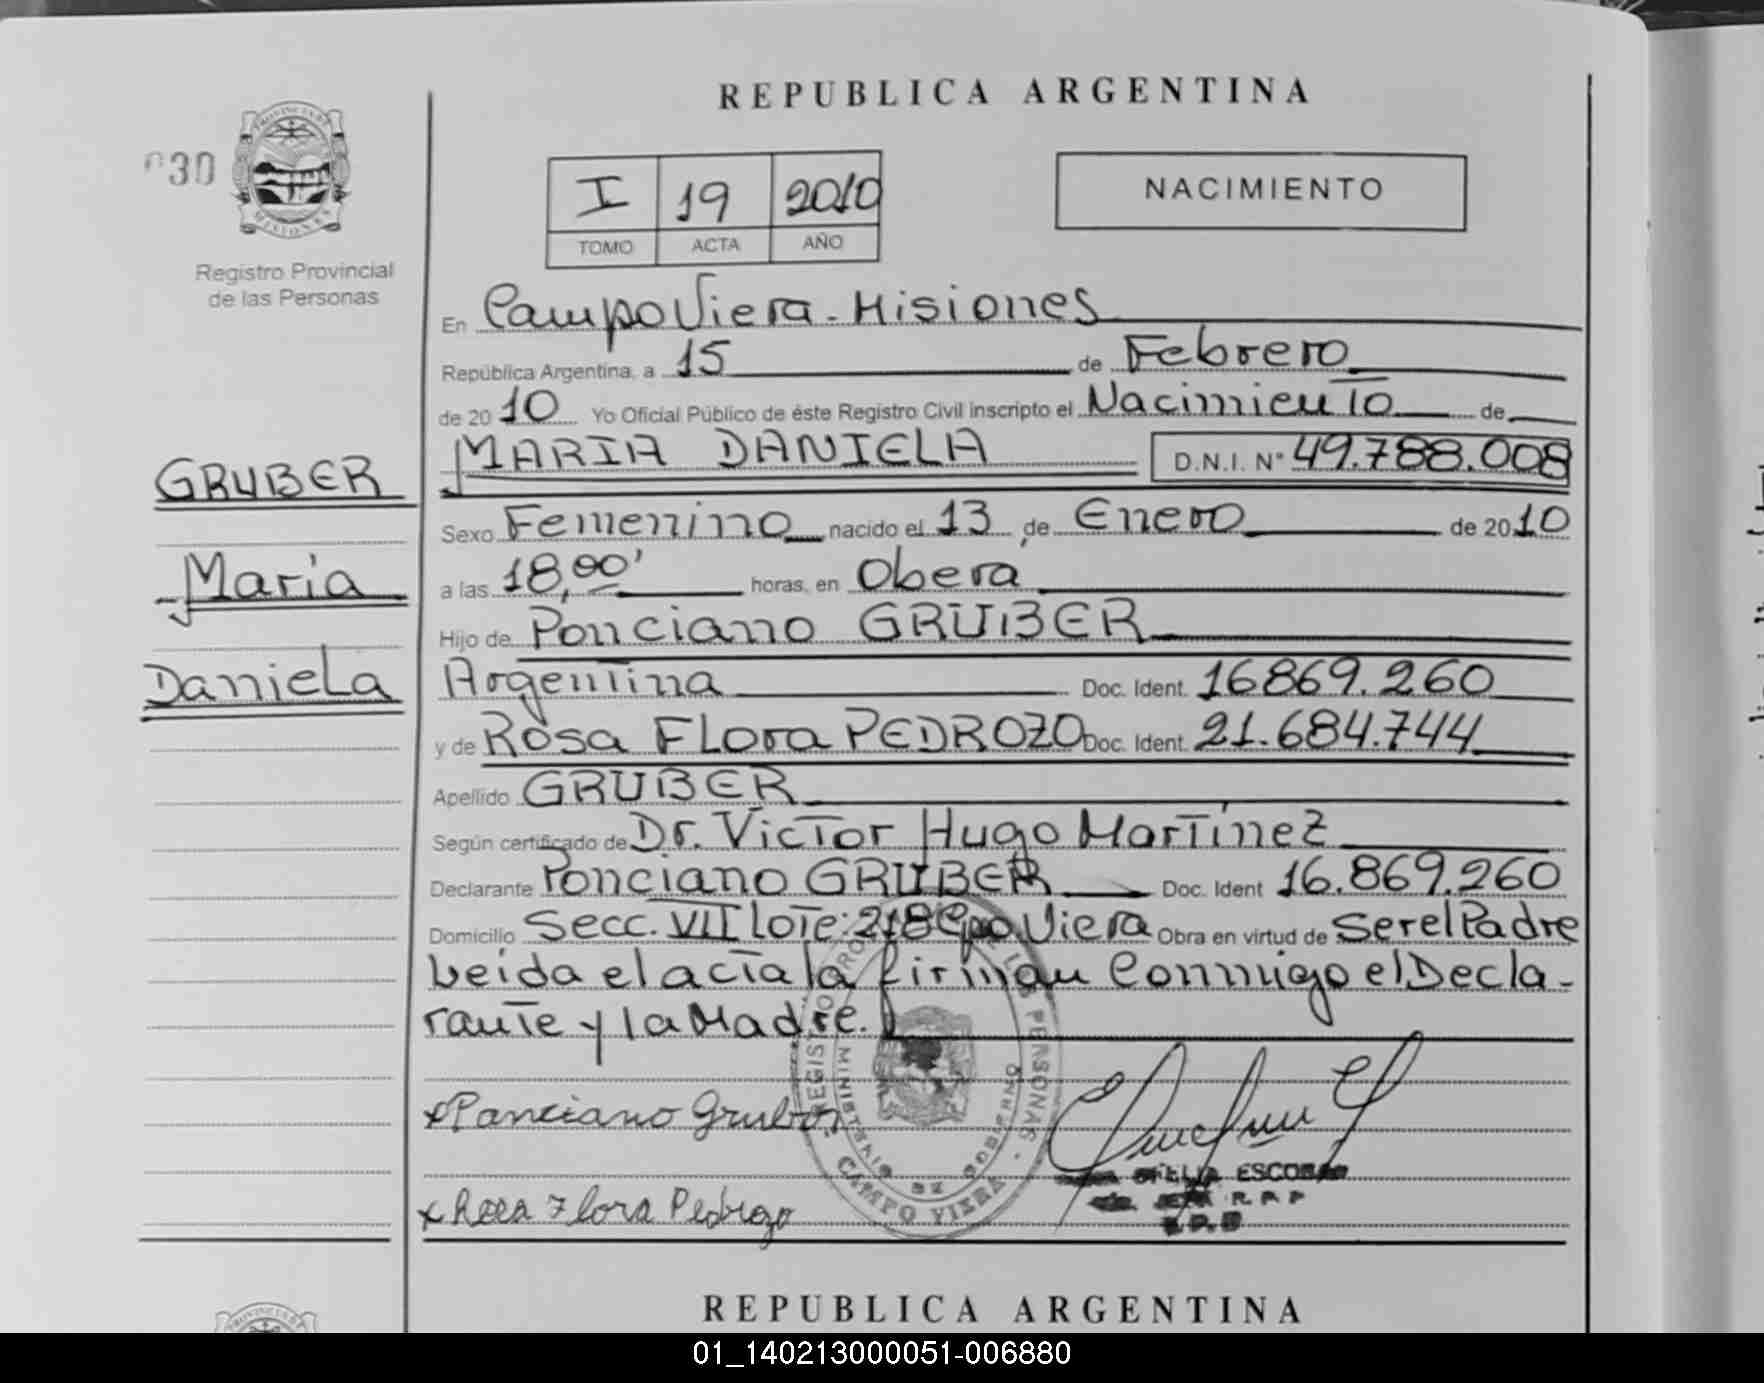 REPUBLICA ARGENTINA
030
PROVINCIA DE MISIONES
Registro Provincial
de las Personas
I 19 2010
TOMO ACTA AÑO
NACIMIENTO
En Campo Viera - Misiones
República Argentina, a 15 de Febrero
de 2010 Yo Oficial Público de éste Registro Civil inscripto el Nacimiento de
MARIA DANIELA D.N.I. N° 49.788.008
GRUBER
Maria
Daniela
Sexo Femenino nacido el 13 de Enero de 2010
a las 18,00' horas, en Oberá
Hijo de Ponciano GRUBER
Argentina Doc. Ident. 16869.260
y de Rosa Flora PEDROZO Doc. Ident. 21.684.744
Apellido GRUBER
Según certificado de Dr. Victor Hugo Martínez
Declarante Ponciano GRUBER Doc. Ident 16.869.260
Domicilio Secc. VII Lote: 218 Cpo Viera Obra en virtud de Ser el Padre
Leida el acta la firman Conmigo el Decla-
rante y la Madre.
x Ponciano Gruber
x Rosa Flora Pedrozo
REGISTRO PROV. DE LAS PERSONAS
MINISTERIO DE GOBIERNO
CAMPO VIERA
OFELIA ESCOBAR
R P P
REPUBLICA ARGENTINA
01_140213000051-006880